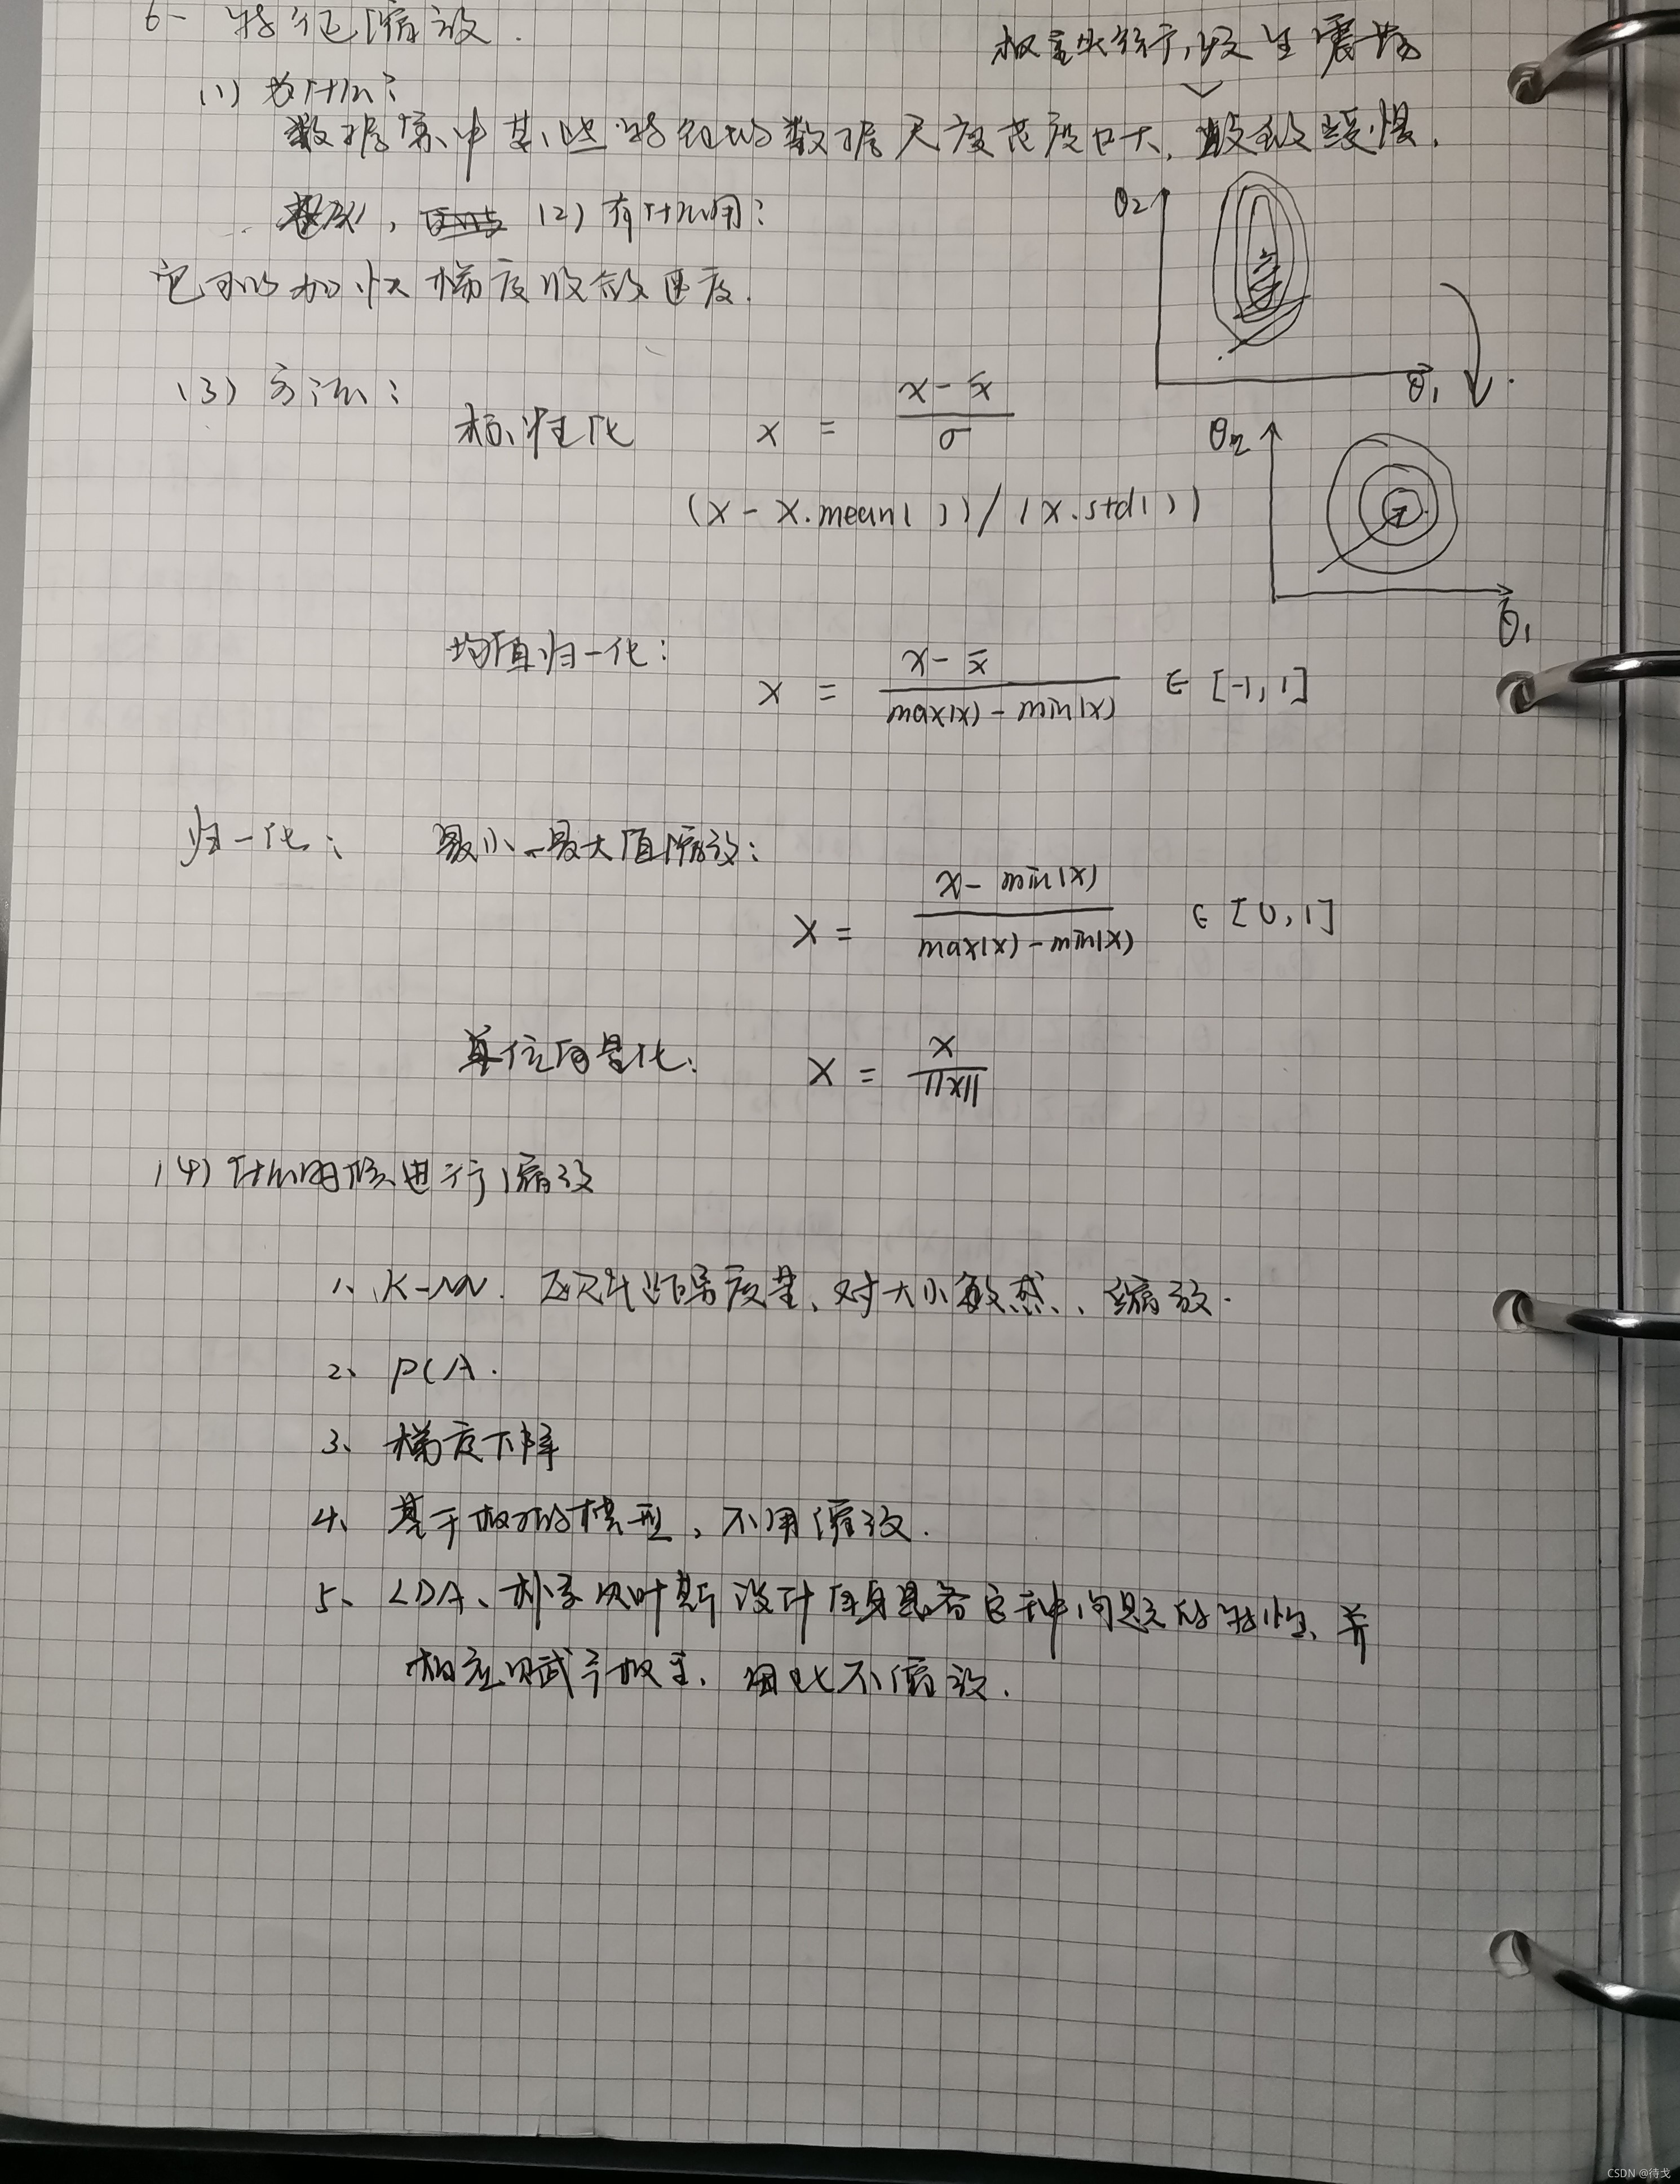 6- 特征缩放.
权重失衡, 发生震荡
(1) 为什么?
数据集中某些特征的数据尺度范度巨大, 收敛缓慢.
(2) 有什么用?
它可以加快梯度收敛速度.
θ2
θ1
(3) 方法:
标准化 x = (x - x̄) / σ
(X - X.mean( )) / (X.std( ))
θ2
θ1
均值归一化: x = (x - x̄) / (max(x) - min(x)) ∈ [-1, 1]
归一化: 最小-最大值缩放:
x = (x - min(x)) / (max(x) - min(x)) ∈ [0, 1]
单位向量化: x = x / ||x||
(4) 什么时候进行缩放
1、K-NN. 欧氏距离度量、对大小敏感、缩放.
2、PCA.
3、梯度下降
4、基于树的模型, 不用缩放.
5、LDA、朴素贝叶斯 设计自身具备这种问题的特性、并
相应的赋予权重, 因此不缩放.
CSDN @待戈